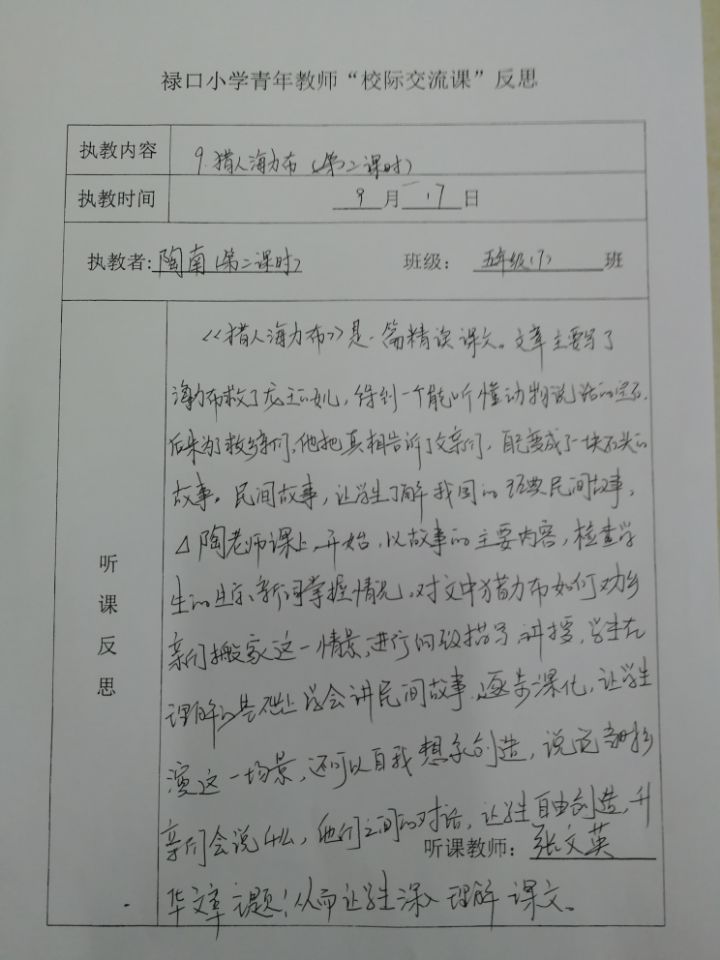 禄口小学青年教师“校际交流课”反思
执教内容 9.猎人海力布（第二课时）
执教时间 9月17日
执教者:陶南(第二课时) 班级: 五年级(7) 班
听课反思
《猎人海力布》是一篇精读课文。文章主要写了
海力布救了龙王的女儿，得到一个能听懂动物说话的宝石，
后来为了救乡亲们，他把真相告诉了乡亲们，自己变成了一块石头的
故事。民间故事，让学生了解我国的经典民间故事，
△陶老师课上一开始，以故事的主要内容，检查学
生的生字、新词掌握情况。对文中猎力布如何劝乡
亲们搬家这一情景，进行细致描写讲授，学生在
理解的基础上学会讲民间故事。逐步深化，让学生
演这一场景，还可以自我想象创造，说说乡
亲们会说什么，他们之间的对话，让学生自由创造，升
听课教师: 张文英
华文章主题！从而让学生深入理解课文。